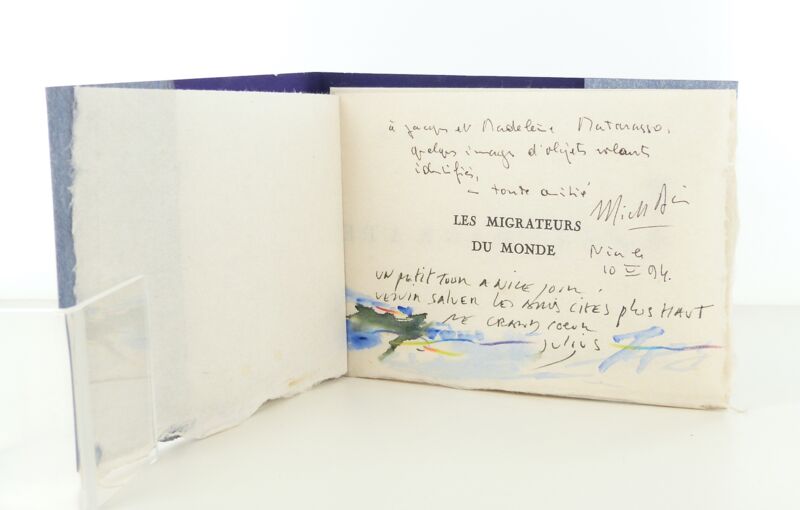 à Jacques et Madeleine Matarasso,
quelques images d'objets volants
identifiés,
toute amitié
LES MIGRATEURS
DU MONDE
Nice le
10 VI 94.
UN PETIT TOUR A NICE POUR
VENIR SALUER LES AMIS CITES PLUS HAUT
DE GRAND COEUR
JULIUS